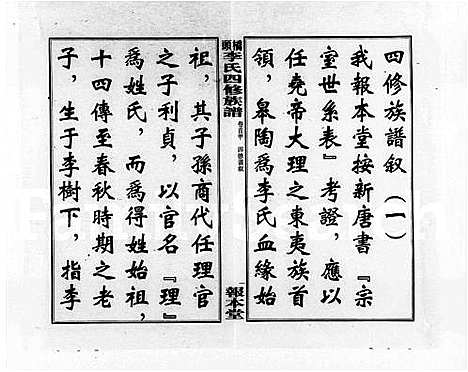 四修族譜叙（一）
我報本堂按新唐書『宗
室世系表』考證，應以
任堯帝大理之東夷族首
領，皋陶爲李氏血緣始
李氏四修族譜
報本堂
祖，其子孫商代任理官
之子利貞，以官名『理』
爲姓氏，而爲得姓始祖，
十四傳至春秋時期之老
子，生于李樹下，指李